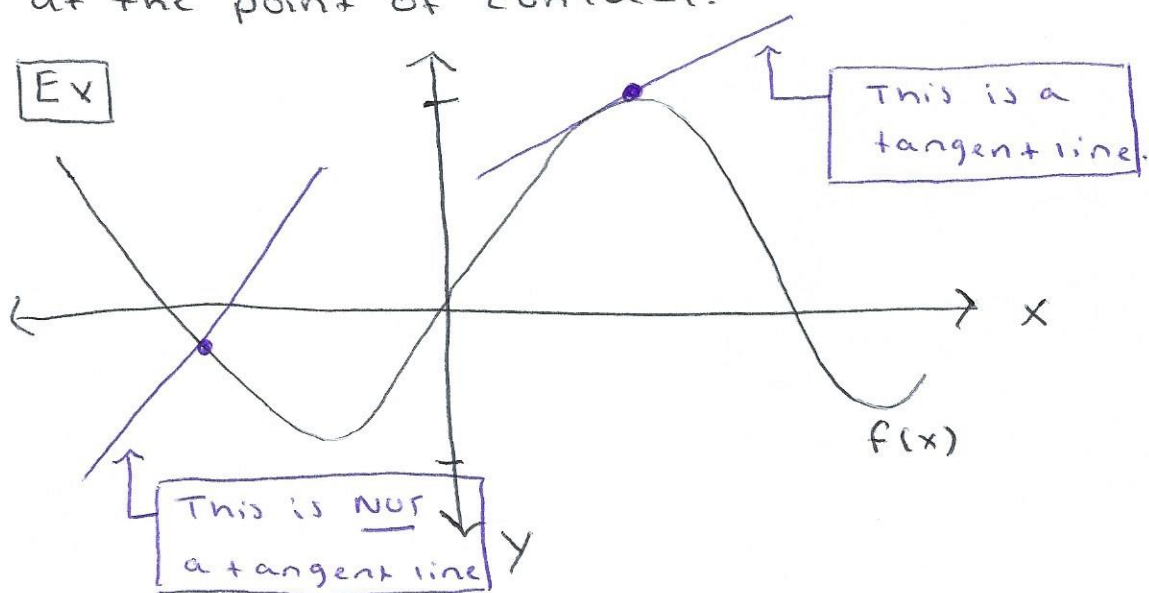 at the point of contact.
Ex
This is a
tangent line.
x
f(x)
This is NOT
a tangent line
y